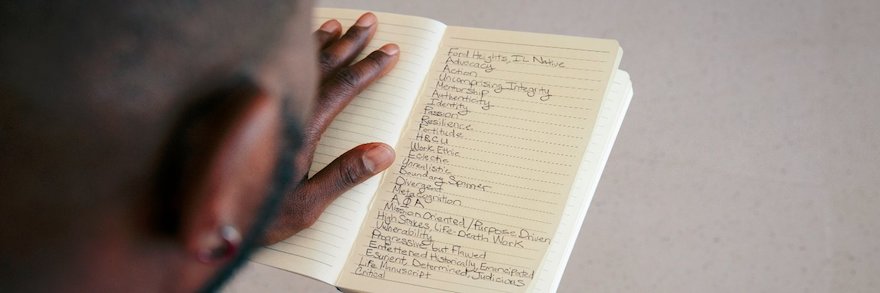 Ford Heights, IL Native
Advocacy
Action
Uncomprising Integrity
Mentorship
Authenticity
Identity
Passion
Resilience
Fortitude
HBCU
Work Ethic
Eclectic
Unrealistic
Boundary Spanner
Divergent
Metacognition
ΑΦΑ
Mission Oriented/Purpose Driven
High Stakes, Life-Death Work
Vulnerability
Progressive but Flawed
Enfettered Historically, Emancipated
Esurient, Determined, Judicious
Life Manuscript
Critical